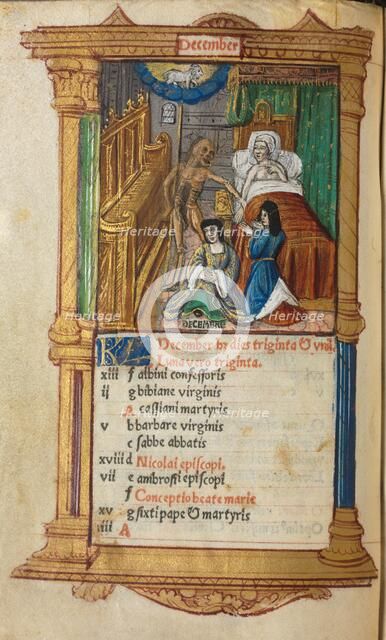 December
DECEMBRE
KL December hz dies triginta & vnū.
Luna vero triginta.
xiii f albini confessoris
ij g bibiane virginis
A cassiani martyris
v b barbare virginis
c sabbe abbatis
xviii d Nicolai episcopi.
vii e ambrosii episcopi
f Conceptio beate marie
xv g sixti pape & martyris
iiii A
Heritage
Heritage
Heritage
Heritage
Heritage
Heritage